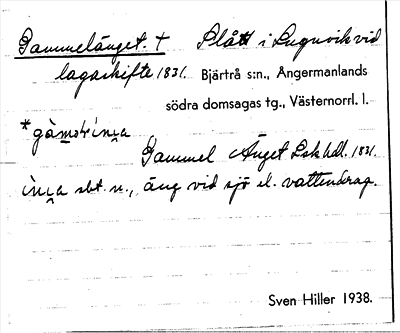 Gammelänget. † Slått i Lugnvik vid
lagaskifte 1831. Bjärtrå s:n., Ångermanlands
södra domsagas tg., Västernorrl. l.
Gammel Änget Lsk hdl. 1831.
sbt. n., äng vid sjö el. vattendrag.
Sven Hiller 1938.